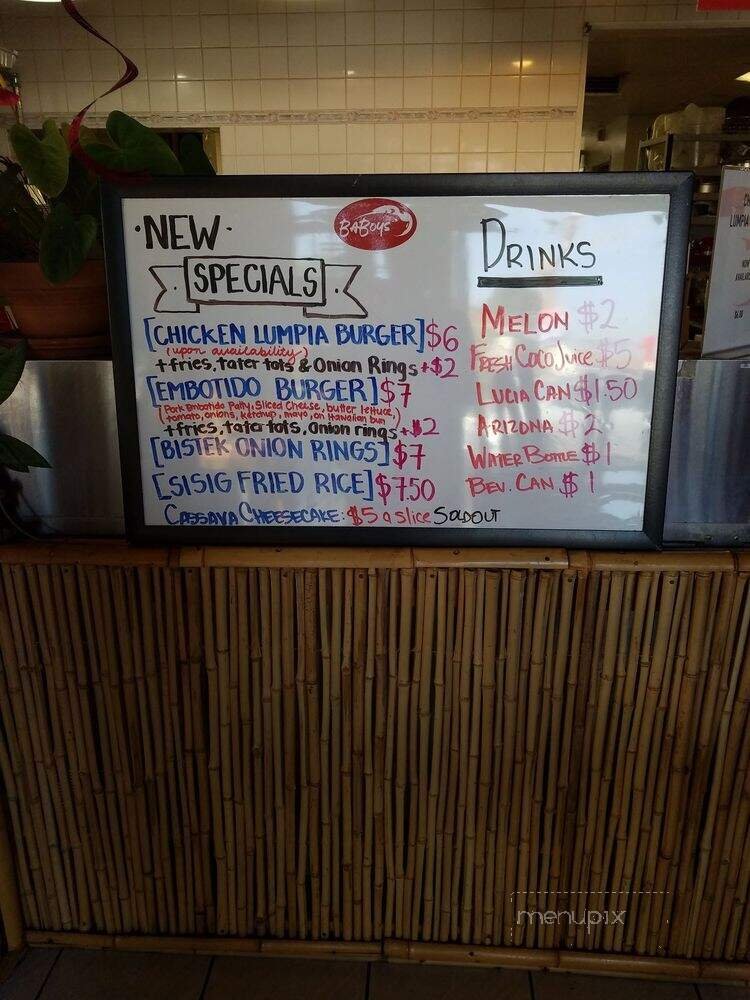 ·NEW·
SPECIALS
BABOYS
[CHICKEN LUMPIA BURGER] $6
(upon availability)
+fries, tater tots & Onion Rings +$2
[EMBOTIDO BURGER] $7
(Pork Embotido Patty, Sliced Cheese, butter lettuce,
tomato, onions, ketchup, mayo, on Hawaiian bun
+fries, tator tots, Onion rings +$2
[BISTEK ONION RINGS] $7
[SISIG FRIED RICE] $7.50
CASSAVA CHEESECAKE: $5 a slice SOLD OUT
DRINKS
MELON $2
FRESH COCO JUICE $5
LUCIA CAN $1.50
ARIZONA $2
WATER BOTTLE $1
BEV. CAN $1
menupix